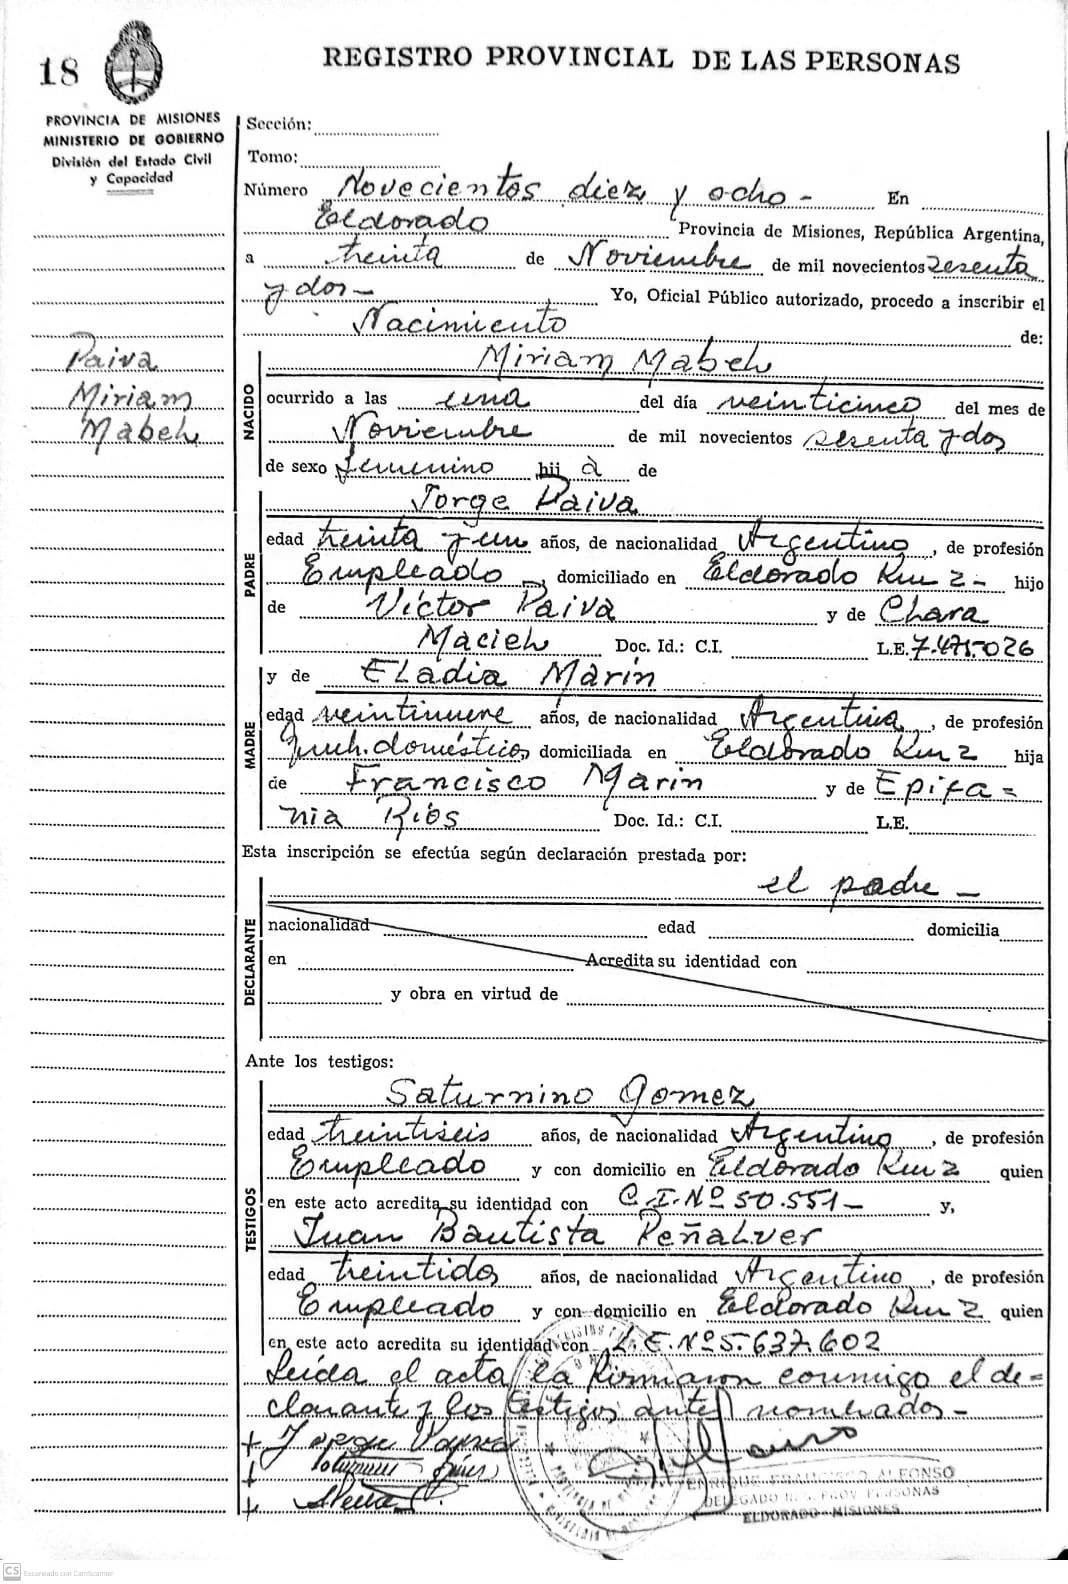 18
REGISTRO PROVINCIAL DE LAS PERSONAS
PROVINCIA DE MISIONES
MINISTERIO DE GOBIERNO
División del Estado Civil
y Capacidad
Paiva
Miriam
Mabel
Sección:
Tomo:
Número Novecientos diez y ocho - En
Eldorado Provincia de Misiones, República Argentina,
a treinta de Noviembre de mil novecientos sesenta
y dos - Yo, Oficial Público autorizado, procedo a inscribir el
Nacimiento de:
Miriam Mabel
NACIDO
ocurrido a las una del día veinticinco del mes de
Noviembre de mil novecientos sesenta y dos
de sexo femenino hij a de
Jorge Paiva
PADRE
edad treinta y un años, de nacionalidad Argentino, de profesión
Empleado, domiciliado en Eldorado Km 2 - hijo
de Víctor Paiva y de Clara
Maciel Doc. Id.: C.I. L.E. 7.475.026
y de Eladia Marín
MADRE
edad veintinueve años, de nacionalidad Argentina, de profesión
domésticos domiciliada en Eldorado Km 2 hija
de Francisco Marin y de Epifa=
nia Ríos Doc. Id.: C.I. L.E.
Esta inscripción se efectúa según declaración prestada por:
el padre -
DECLARANTE
nacionalidad edad domicilia
en Acredita su identidad con
y obra en virtud de
Ante los testigos:
Saturnino Gomez
TESTIGOS
edad treintiseis años, de nacionalidad Argentino, de profesión
Empleado y con domicilio en Eldorado Km 2 quien
en este acto acredita su identidad con C.I. Nº 50.551 - y,
Juan Bautista Peñalver
edad treintidos años, de nacionalidad Argentino, de profesión
Empleado y con domicilio en Eldorado Km 2 quien
en este acto acredita su identidad con L.E. Nº 5.637.602
Leída el acta la firmaron conmigo el de=
clarante y los testigos antes nombrados -
Jorge Paiva
ENRIQUE FRANCISCO ALFONSO
DELEGADO REG. PROV. PERSONAS
ELDORADO - MISIONES
CS Escaneado con CamScanner